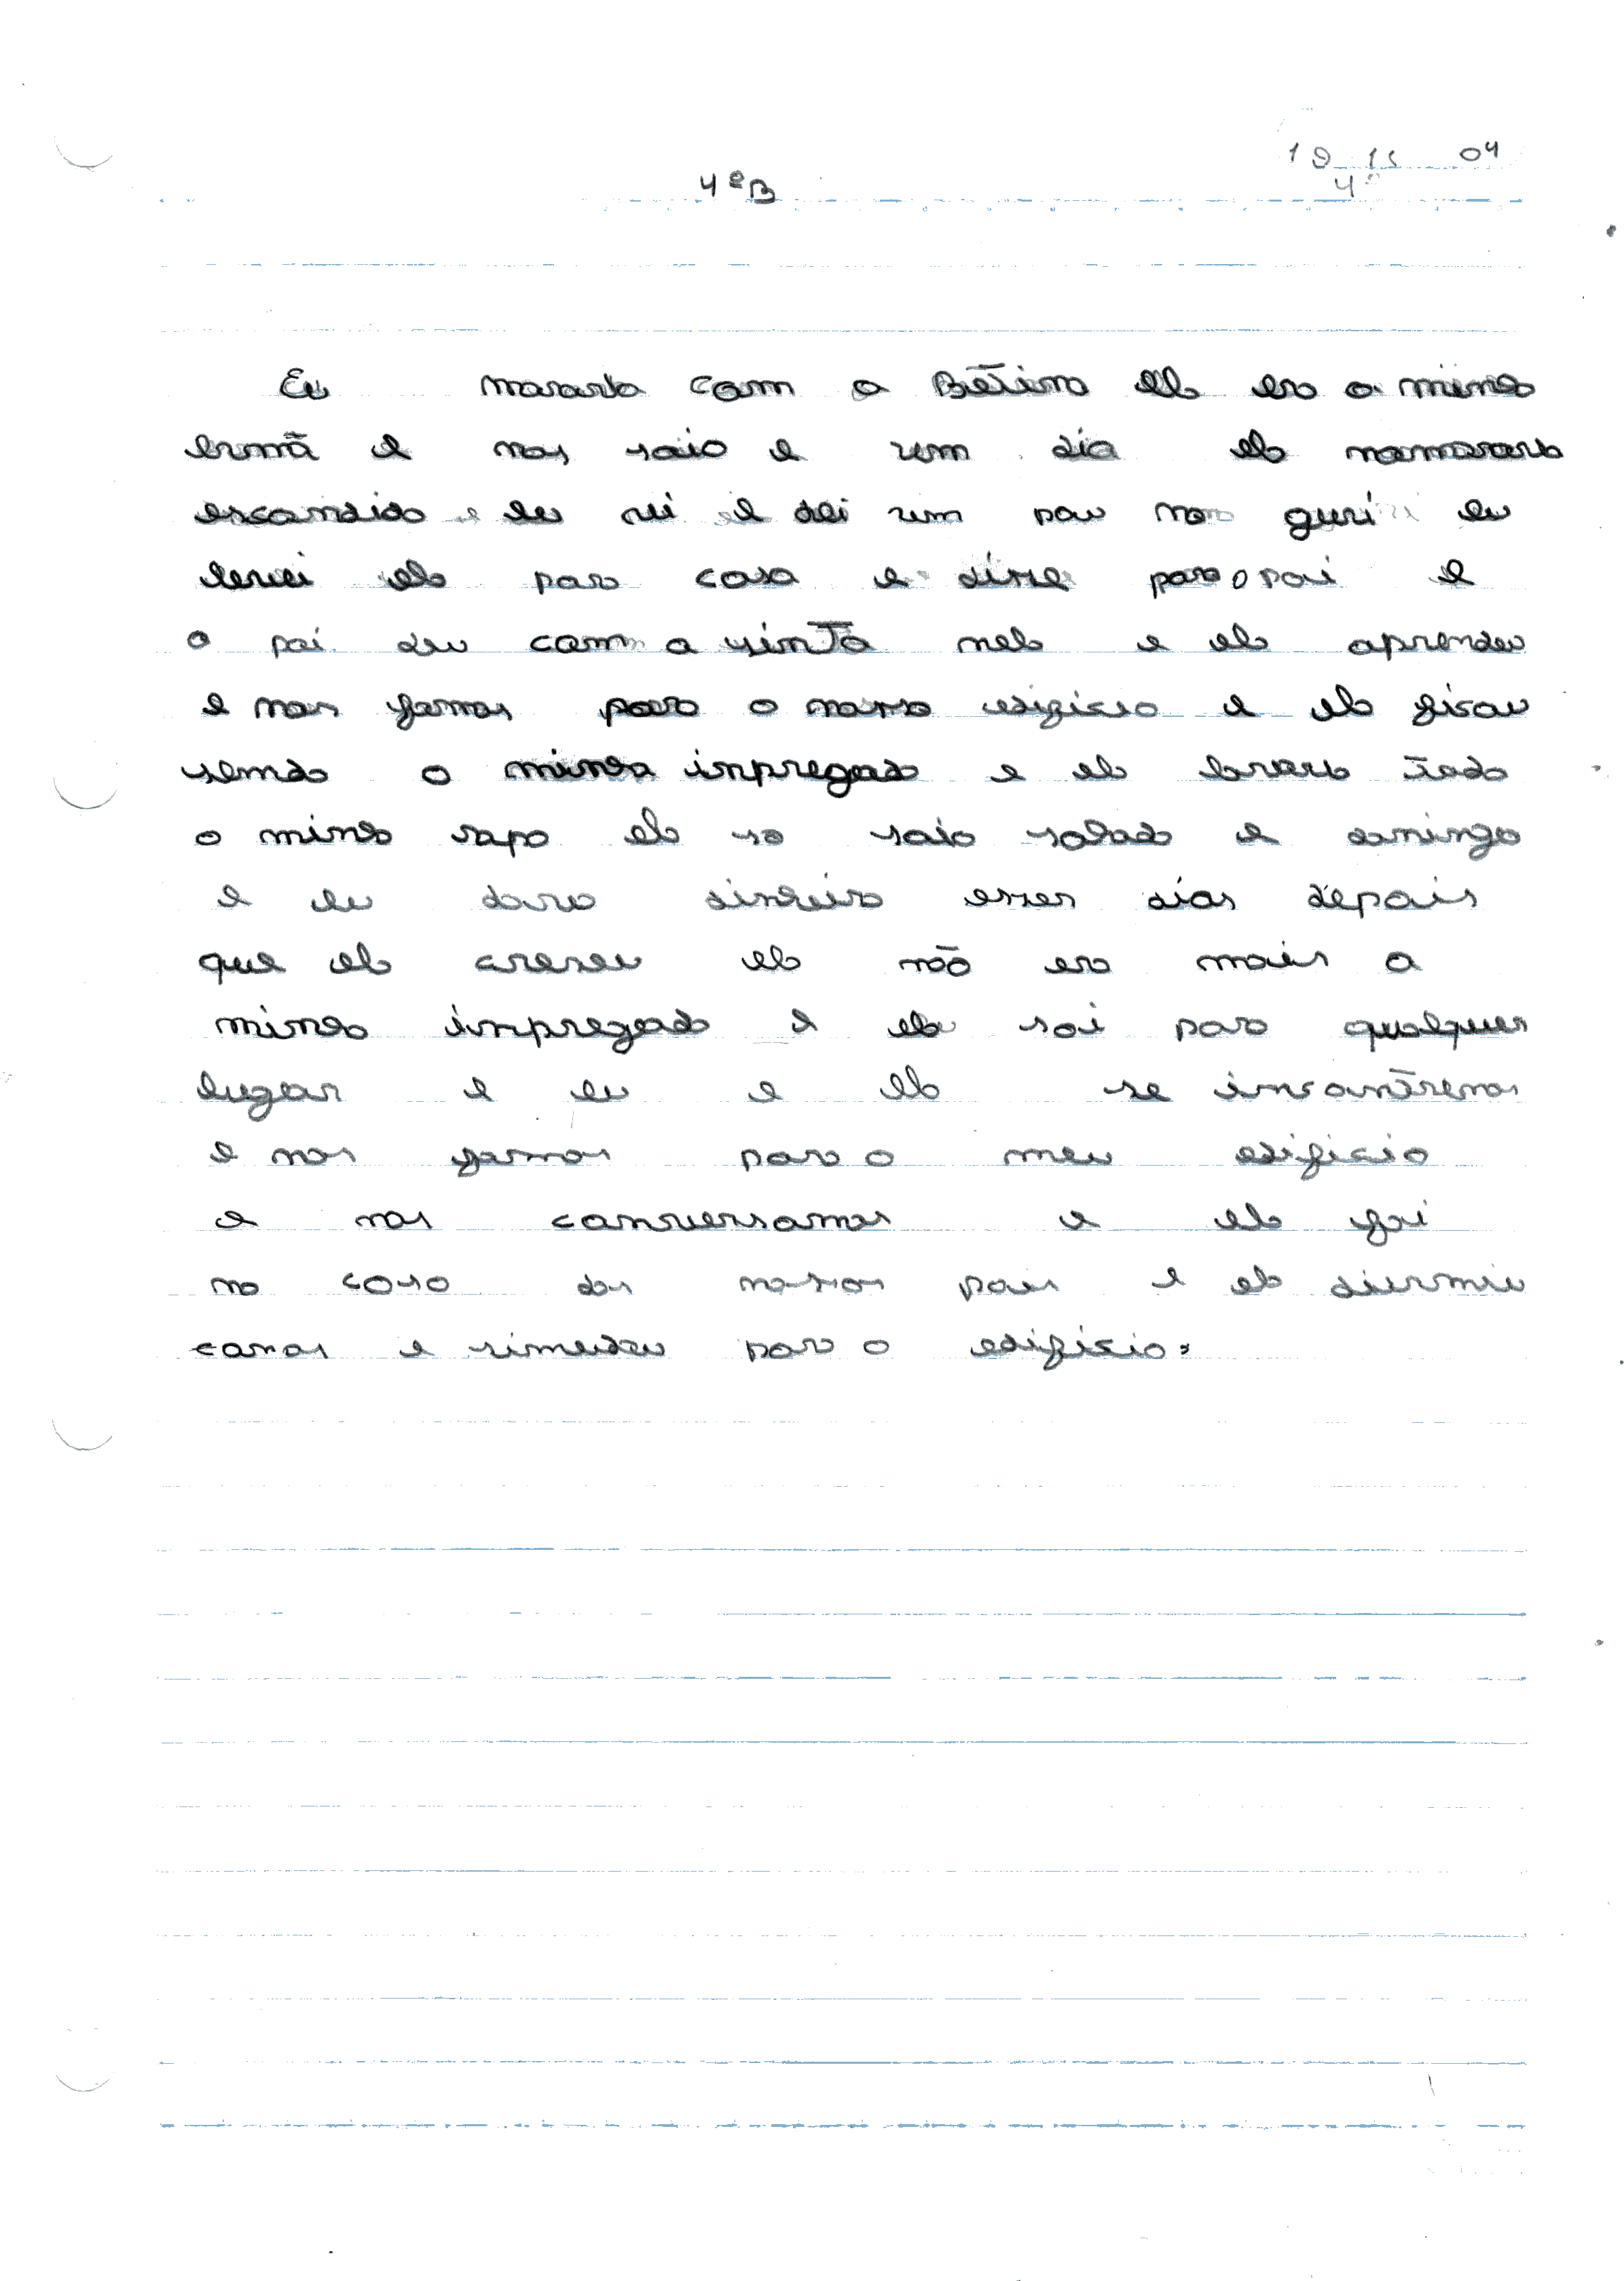 4ºB
19 11 04
4º
Eu morava com a Bētina ela era a minha
ermã e nos saia e um dia ela namorava
escondido e eu vi e dei um pau no guri eu
levei ela para casa e disse para o pai e
o pai deu com a sinta nela e ela aprendeu
e nos fomos para o nosso edificio e ela ficou
sendo a minha inpregada e ela lavava toda
a minha ropa ela so saia sabado e domingo
e eu dava dinheiro esses dias depois
que ela creseu ela não era mais a
minha impregada e ela sai para qualquer
lugar e eu e ela se incontremos
e nos fomos para o meu edificio
e nos conversamos e ela foi
na casa dos nossos pais e ela durmiu
conos e simudou para o edificio.